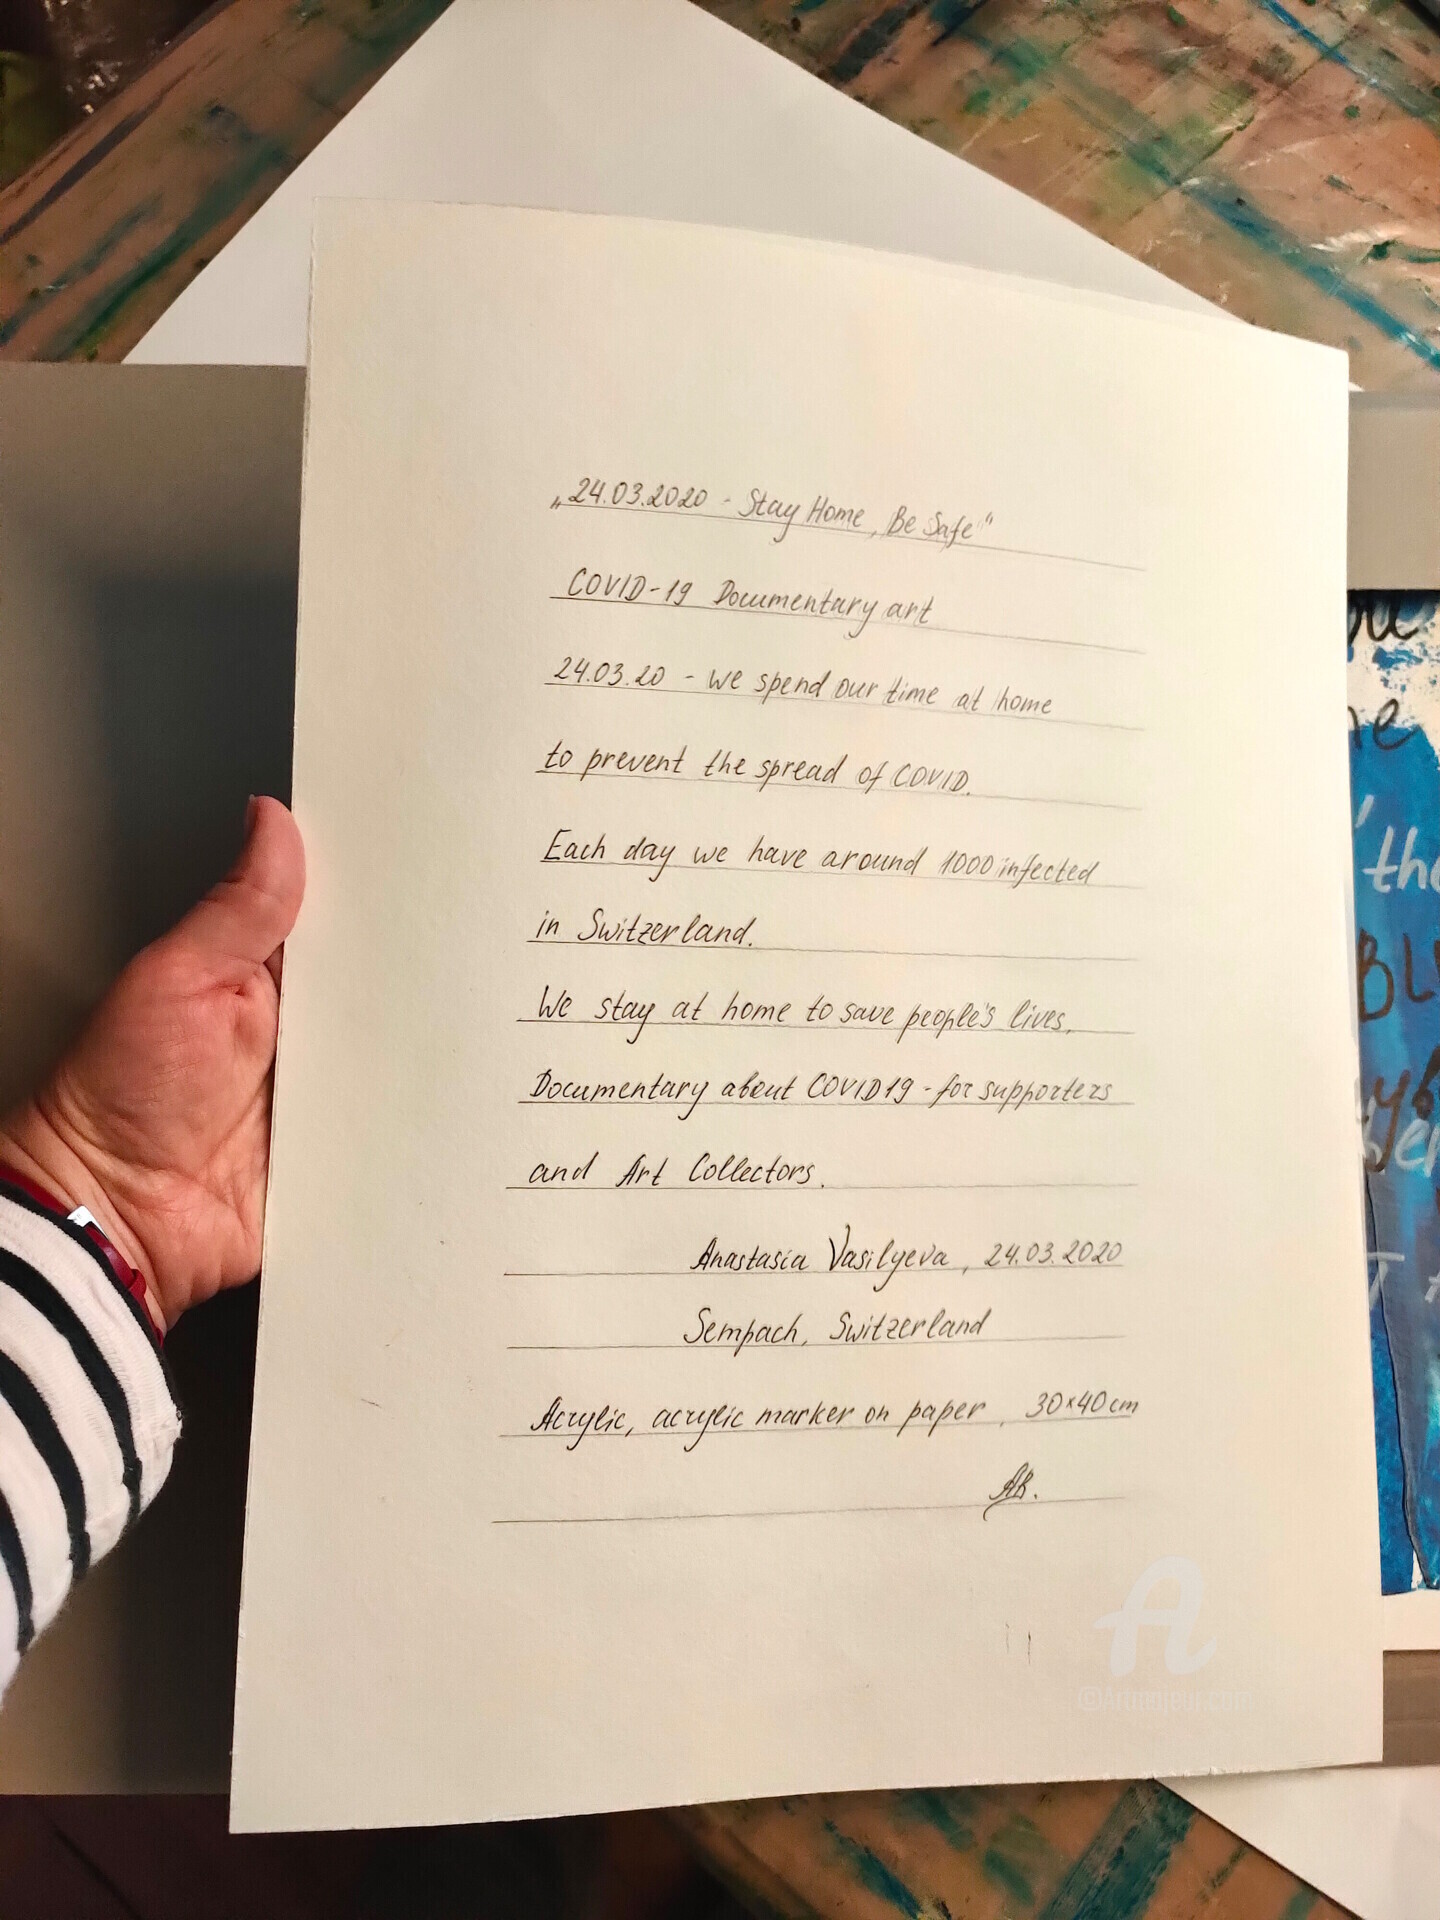 „24.03.2020 - Stay Home, Be Safe"
COVID-19 Documentary art
24.03.20 - we spend our time at home
to prevent the spread of COVID.
Each day we have around 1000 infected
in Switzerland.
We stay at home to save people's lives.
Documentary about COVID19 - for supporters
and Art Collectors.
Anastasia Vasilyeva, 24.03.2020
Sempach, Switzerland
Acrylic, acrylic marker on paper, 30×40cm
©Artmajeur.com